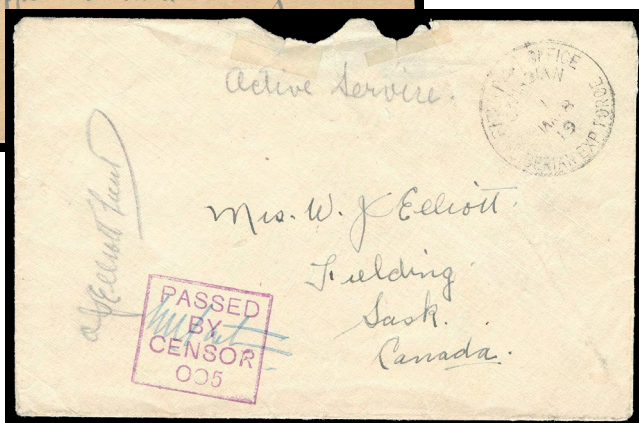 Active Service.
FIELD POST OFFICE
CANADIAN
1
JAN 8
19
SIBERIAN EXP. FORCE
Mrs. W. J. Elliott.
Fielding
Sask.
Canada.
PASSED
BY
CENSOR
005